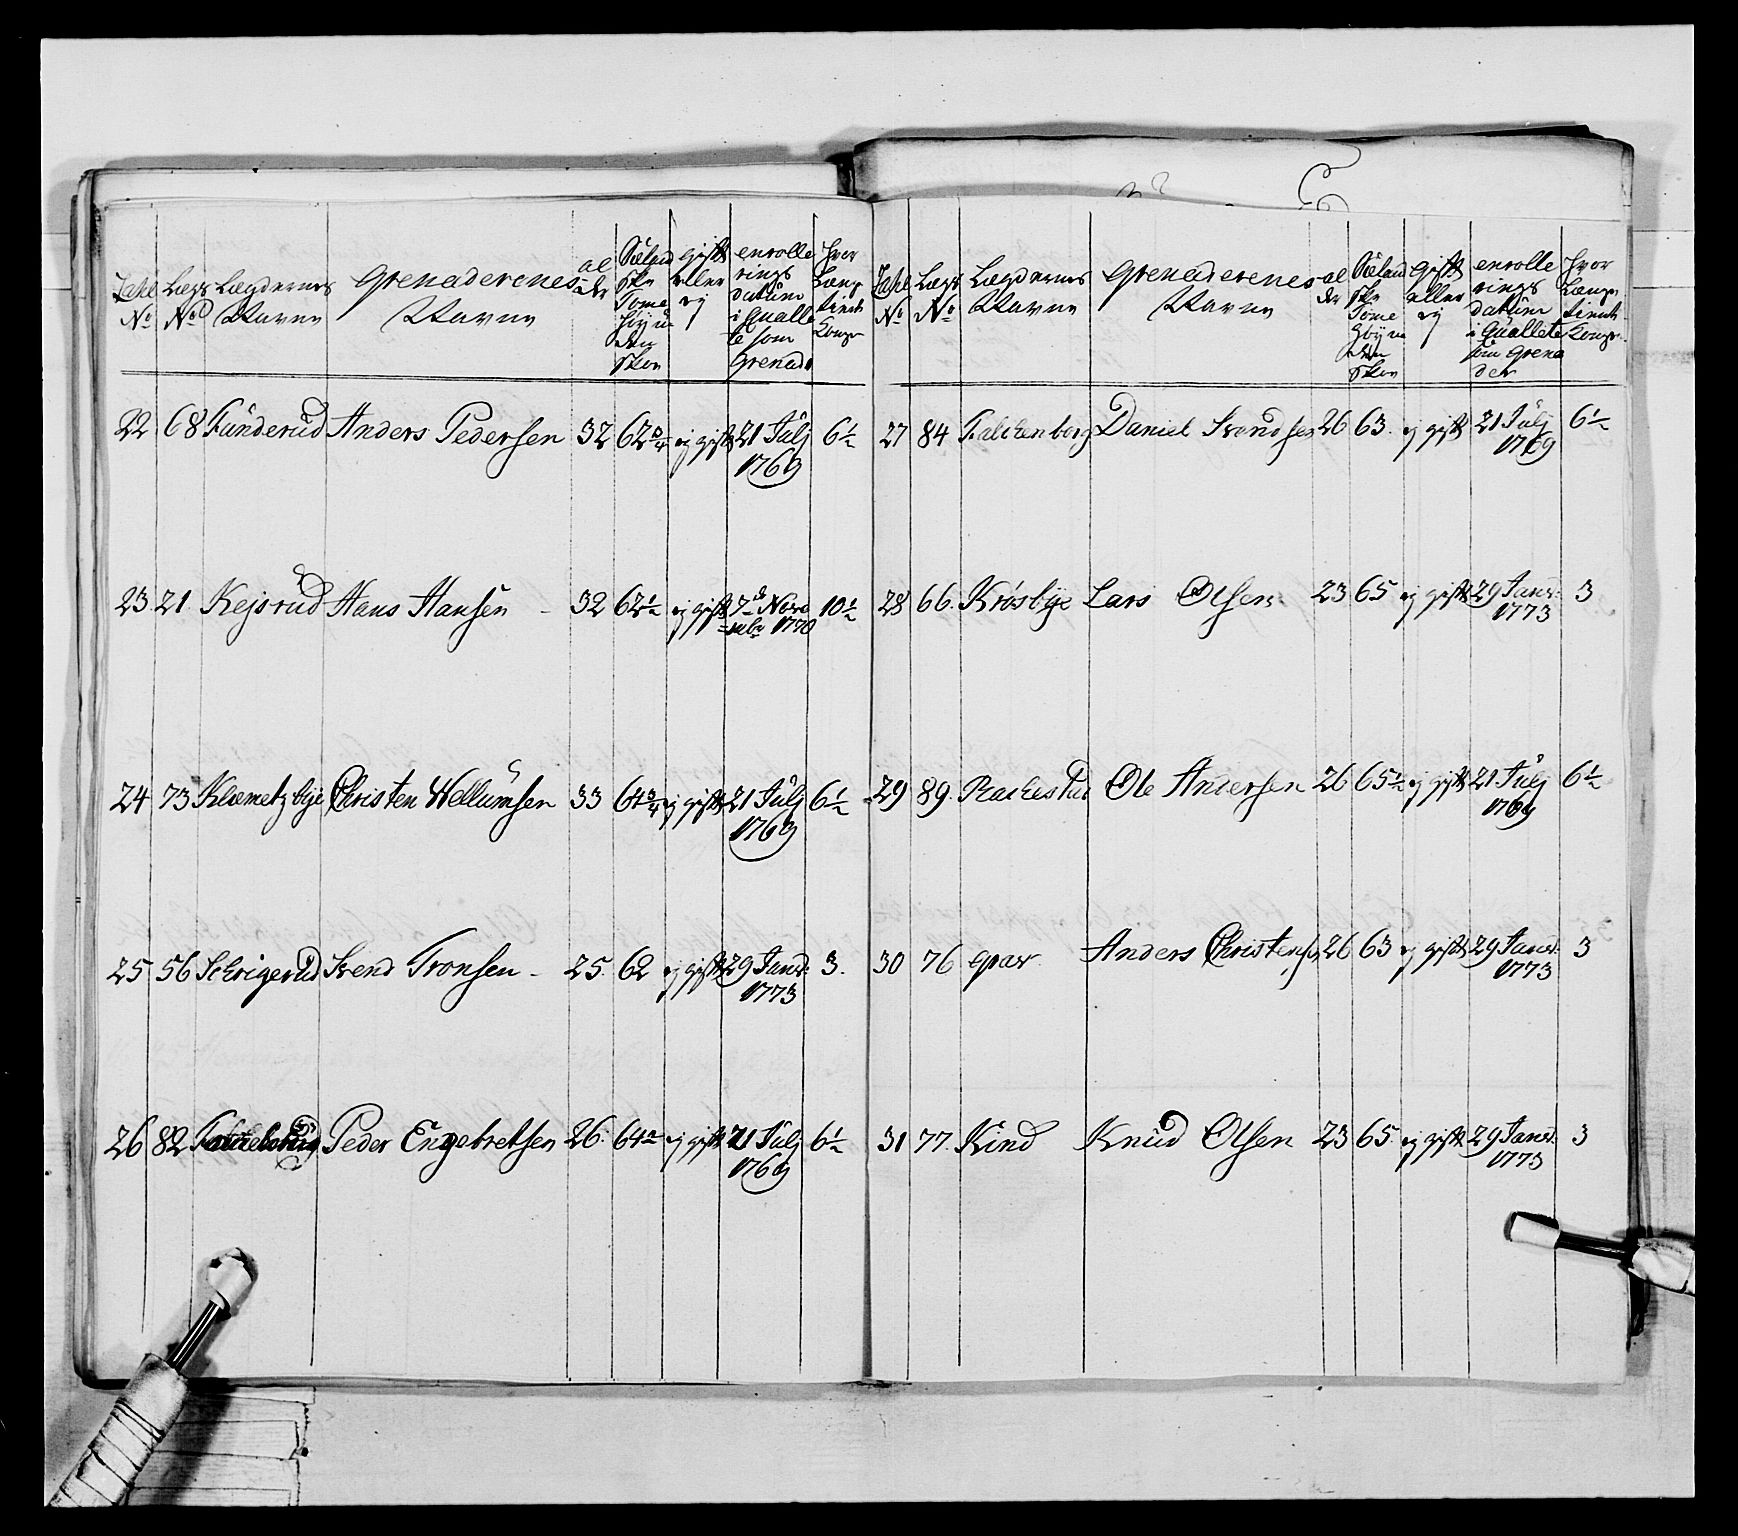 Tahl No | Lægs No | Lægdernes Navne | Grenaderenes Navne | al der | Siæland ske Tome Høy u den Skoe | Gift eller ej | enrolle rings datum i Qualle te som Grenad | Hvor Længe tient Konge
22 | 68 | Funderud | Anders Pedersen | 32 | 62 | ej gift | 21 Julj 1769 | 6½
23 | 21 | Kejsrud | Hans Hansen | 32 | 62½ | ej gift | 7d Nove mbr 1770 | 10½
24 | 73 | Klæmetzbye | Christen Wellumsen | 33 | 64¾ | ej gift | 21 Julj 1769 | 6½
25 | 56 | Schrigerud | Svend Tronsen | 25 | 62 | ej gift | 29 Janr: 1773 | 3.
26 | 82 | Peder Engebretsen | 26 | ej gift | 21 Julj 1769 | 6½
Tahl No | Lægs No | Lægdernes Navne | Grenaderenes Navne | al der | Siæland ske Tome Høy u den Skoe | Gift eller ej | enrolle rings datum i Quallete som Grena der | Hvor Længe tient Konge
27 | 84 | Falchenborg | Daniel Svendsen | 26 | 63. | ej gift | 21 Julj 1769 | 6½
28 | 66. | Krøsbye | Lars Olsen | 23 | 65 | ej gift | 29 Janr: 1773 | 3
29 | 89. | Rachestad | Ole Andersen | 26 | 65½ | ej gift | 21 Julj 1769 | 6½
30 | 76 | Anders Christens: | 26 | 63 | ej gift | 29 Janr: 1773 | 3
31 | 77. | Kind | Knud Olsen | 23 | 65 | ej gift | 29 Janr: 1773 | 3